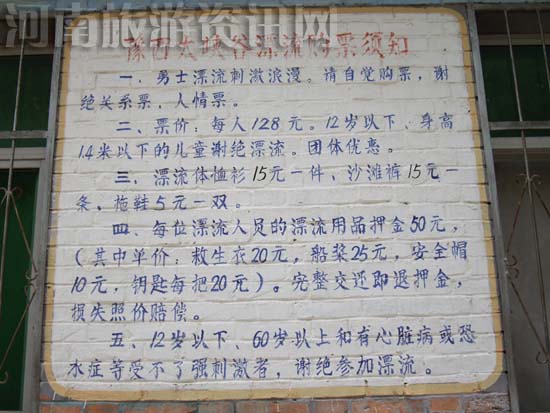 河南旅游资讯网
豫西大峡谷漂流购票须知
一、勇士漂流刺激浪漫。请自觉购票,谢
绝关系票,人情票。
二、票价:每人128元。12岁以下、身高
1.4米以下的儿童谢绝漂流。团体优惠。
三、漂流体恤衫15元一件、沙滩裤15元一
条,拖鞋5元一双。
四、每位漂流人员的漂流用品押金50元,
(其中单价:救生衣20元,船桨25元,安全帽
10元,钥匙每把20元)。完整交还即退押金,
损失照价赔偿。
五、12岁以下、60岁以上和有心脏病或恐
水症等受不了强刺激者,谢绝参加漂流。